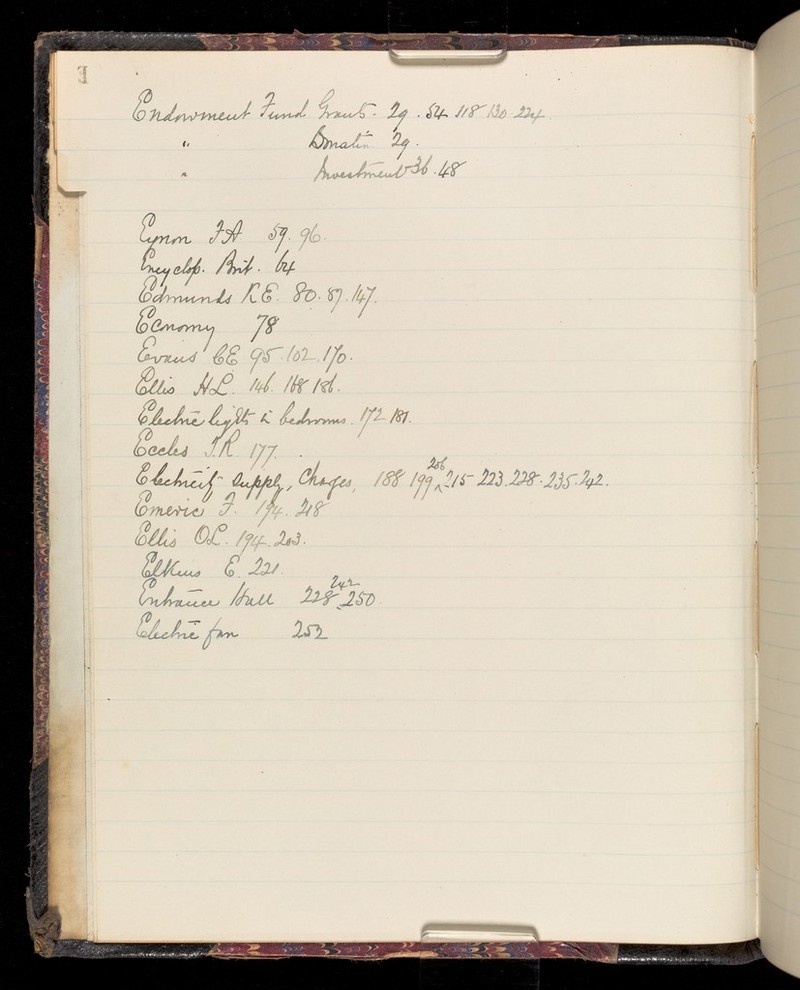 E
Endowment Fund Grants. 29. 54 118 130 224
" Donatn 29.
" Investment 36. 48
Eynon F A 59. 96.
Encyclop. Brit. 64
Edmunds K E. 80. 87. 147.
Economy 78
Evans C E 95. 102. 170.
Ellis H L. 146. 168 186.
Electric lights in bedrooms. 172 181.
Eccles J. R. 177.
Electricity supply, Charges, 188 199 206 215 223. 228. 235. 242.
Emeric F. 194. 218
Ellis O L. 194. 203.
Elkins E. 221.
Entrance Hall 228 242 250
Electric fan 252